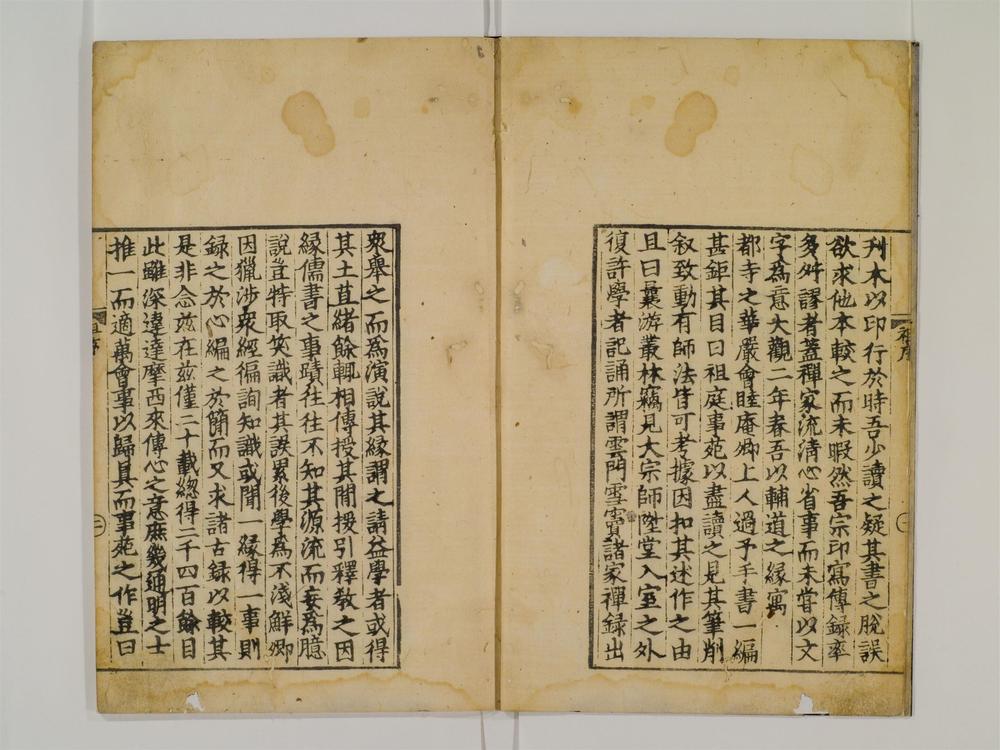 刊本以印行於時吾少讀之疑其書之脫誤
欲求他本較之而未暇然吾宗印寫傳録率
多舛謬者蓋禪家流清心省事而未嘗以文
字為意大觀二年春吾以輔道之縁寓
都寺之華嚴會睦庵卿上人過予手書一編
甚鉅其目曰祖庭事苑以盡讀之見其筆削
叙致動有師法皆可考據因扣其述作之由
且曰曩游叢林竊見大宗師陞堂入室之外
復許學者記誦所謂雲門雪竇諸家禪録出
衆舉之而為演說其縁謂之請益學者或得
其土苴緒餘輒相傳授其間援引釋教之因
縁儒書之事蹟往往不知其源流而妄為臆
說豈特取笑識者其誤累後學為不淺鮮卿
因獵涉衆經徧詢知識或聞一縁得一事則
録之於心編之於簡而又求諸古録以較其
是非念兹在兹僅二十載總得二千四百餘目
此雖深違達摩西來傳心之意庶幾通明之士
推一而適萬會事以歸真而事苑之作豈曰
二